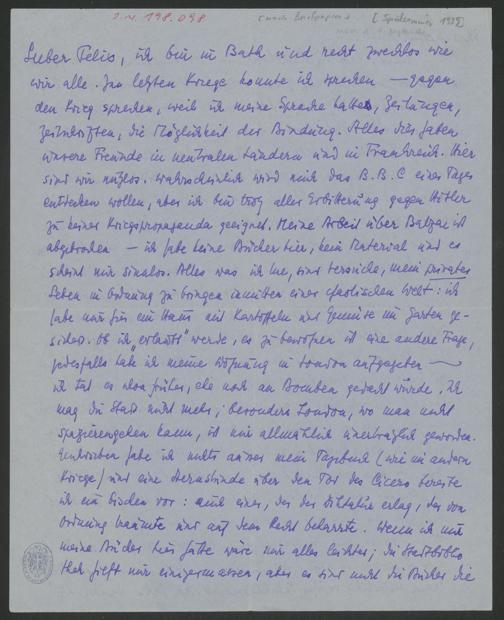 I.N. 198.098
[Spätsommer 1939]
Lieber Felix, ich bin in Bath und recht zwecklos wie
wir alle. Im letzten Kriege konnte ich sprechen — gegen
den Krieg sprechen, weil ich meine Sprache hatte, Zeitungen,
Zeitschriften, die Möglichkeit der Bindung. Alles dies haben
unsere Freunde in neutralen Ländern und in Frankreich. Hier
sind wir nutzlos. Wahrscheinlich wird mich das B.B.C eines Tages
entdecken wollen, aber ich bin trotz aller Erbitterung gegen Hitler
zu keiner Kriegspropaganda geeignet. Meine Arbeit über Balzac ist
abgebrochen — ich habe keine Bücher hier, kein Material und es
scheint mir sinnlos. Alles was ich tue, sind Versuche, mein privates
Leben in Ordnung zu bringen inmitten einer chaotischen Welt: ich
habe nun für ein Haus mit Kartoffeln und Gemüse im Garten ge-
sichert. Ob ich "erlaubt" werde, es zu bewohnen ist eine andere Frage,
jedesfalls habe ich meine Wohnung in London aufgegeben —
ich tat es schon früher, ehe noch an Bomben gedacht wurde. Ich
mag die Stadt nicht mehr; besonders London, wo man nicht
spazierengehen kann, ist mir allmählich unerträglich geworden.
Geschrieben habe ich nichts ausser mein Tagebuch (wie im andern
Kriege) und eine Sternstunde über den Tod des Cicero bereite
ich ein bisschen vor: auch einer, der der Diktatur erlag, der von
Ordnung träumte und auf dem Recht beharrte. Wenn ich nur
meine Bücher hier hätte wäre mir alles leichter; die Stadtbiblio
thek hilft mir einigermassen, aber es sind nicht die Bücher die